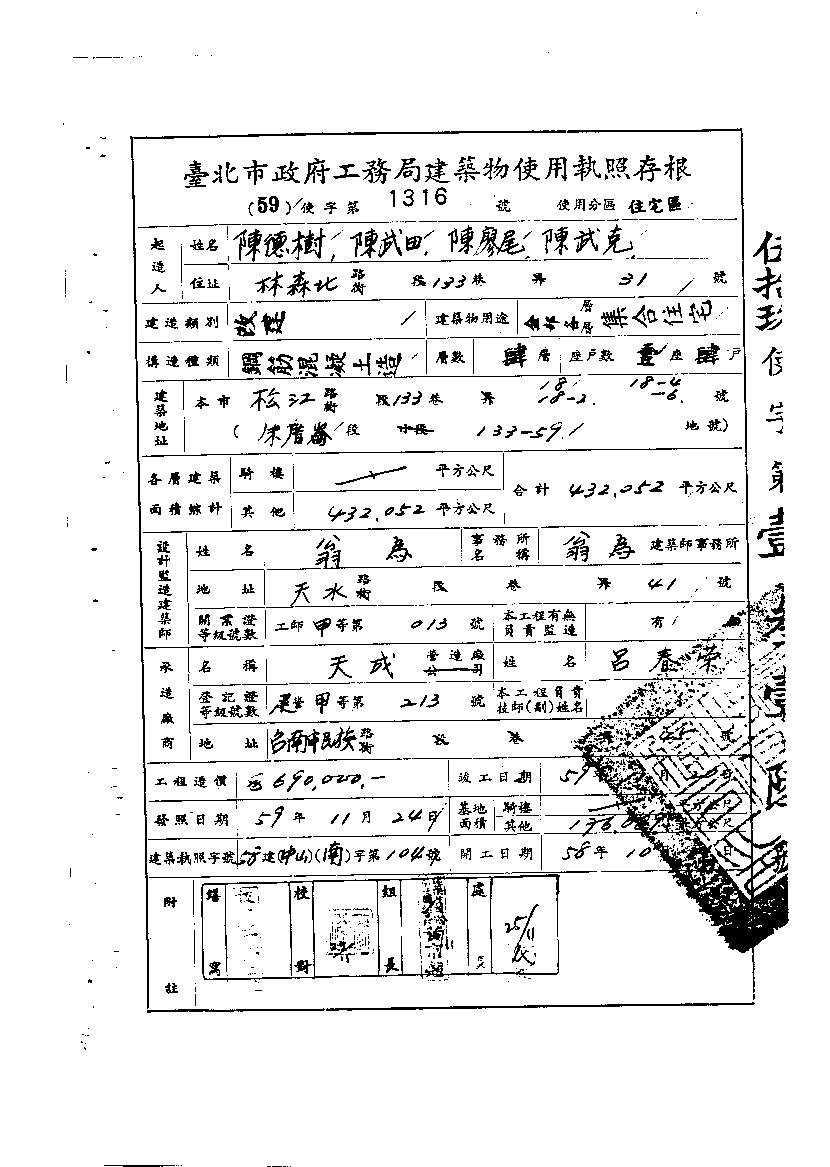 臺北市政府工務局建築物使用執照存根
(59)使字第 1316 號 使用分區 住宅區
起造人 姓名 陳德樹 陳武田 陳廖尾 陳武克
住址 林森北 路街 段 133 巷 弄 31 號
建造類別 改建 建築物用途 層層 集合住宅
構造種類 鋼筋混凝土造 層數 肆 層 座戶數 壹 座 肆 戶
建築地址 本市 松江 路街 段 133 巷 弄 18 18-2 18-4 -6 號
( 朱厝崙 段 小段 133-59 地號)
各層建築面積綜計 騎樓 平方公尺 合計 432.052 平方公尺
其他 432.052 平方公尺
設計監造建築師 姓名 翁為 事務所名稱 翁為 建築師事務所
地址 天水 路街 段 巷 弄 41 號
開業證等級號數 工師 甲 等第 013 號 本工程有無負責監造 有
承造廠商 名稱 天成 營造廠公司 姓名 呂春榮
登記證等級號數 營 甲 等第 213 號 本工程負責技師(副)姓名
地址 台南市民族 路街 段 巷 弄 號
工程造價 690,020.- 竣工日期 59 年 月 20 日
發照日期 59 年 11 月 24 日 基地面積 騎樓 平方公尺
其他 平方公尺
建築執照字號 58 建(中山)(南)字第 104 號 開工日期 58 年 10 日
附註 繕寫 校對 組長 處 25/11
伍拾玖使字第壹